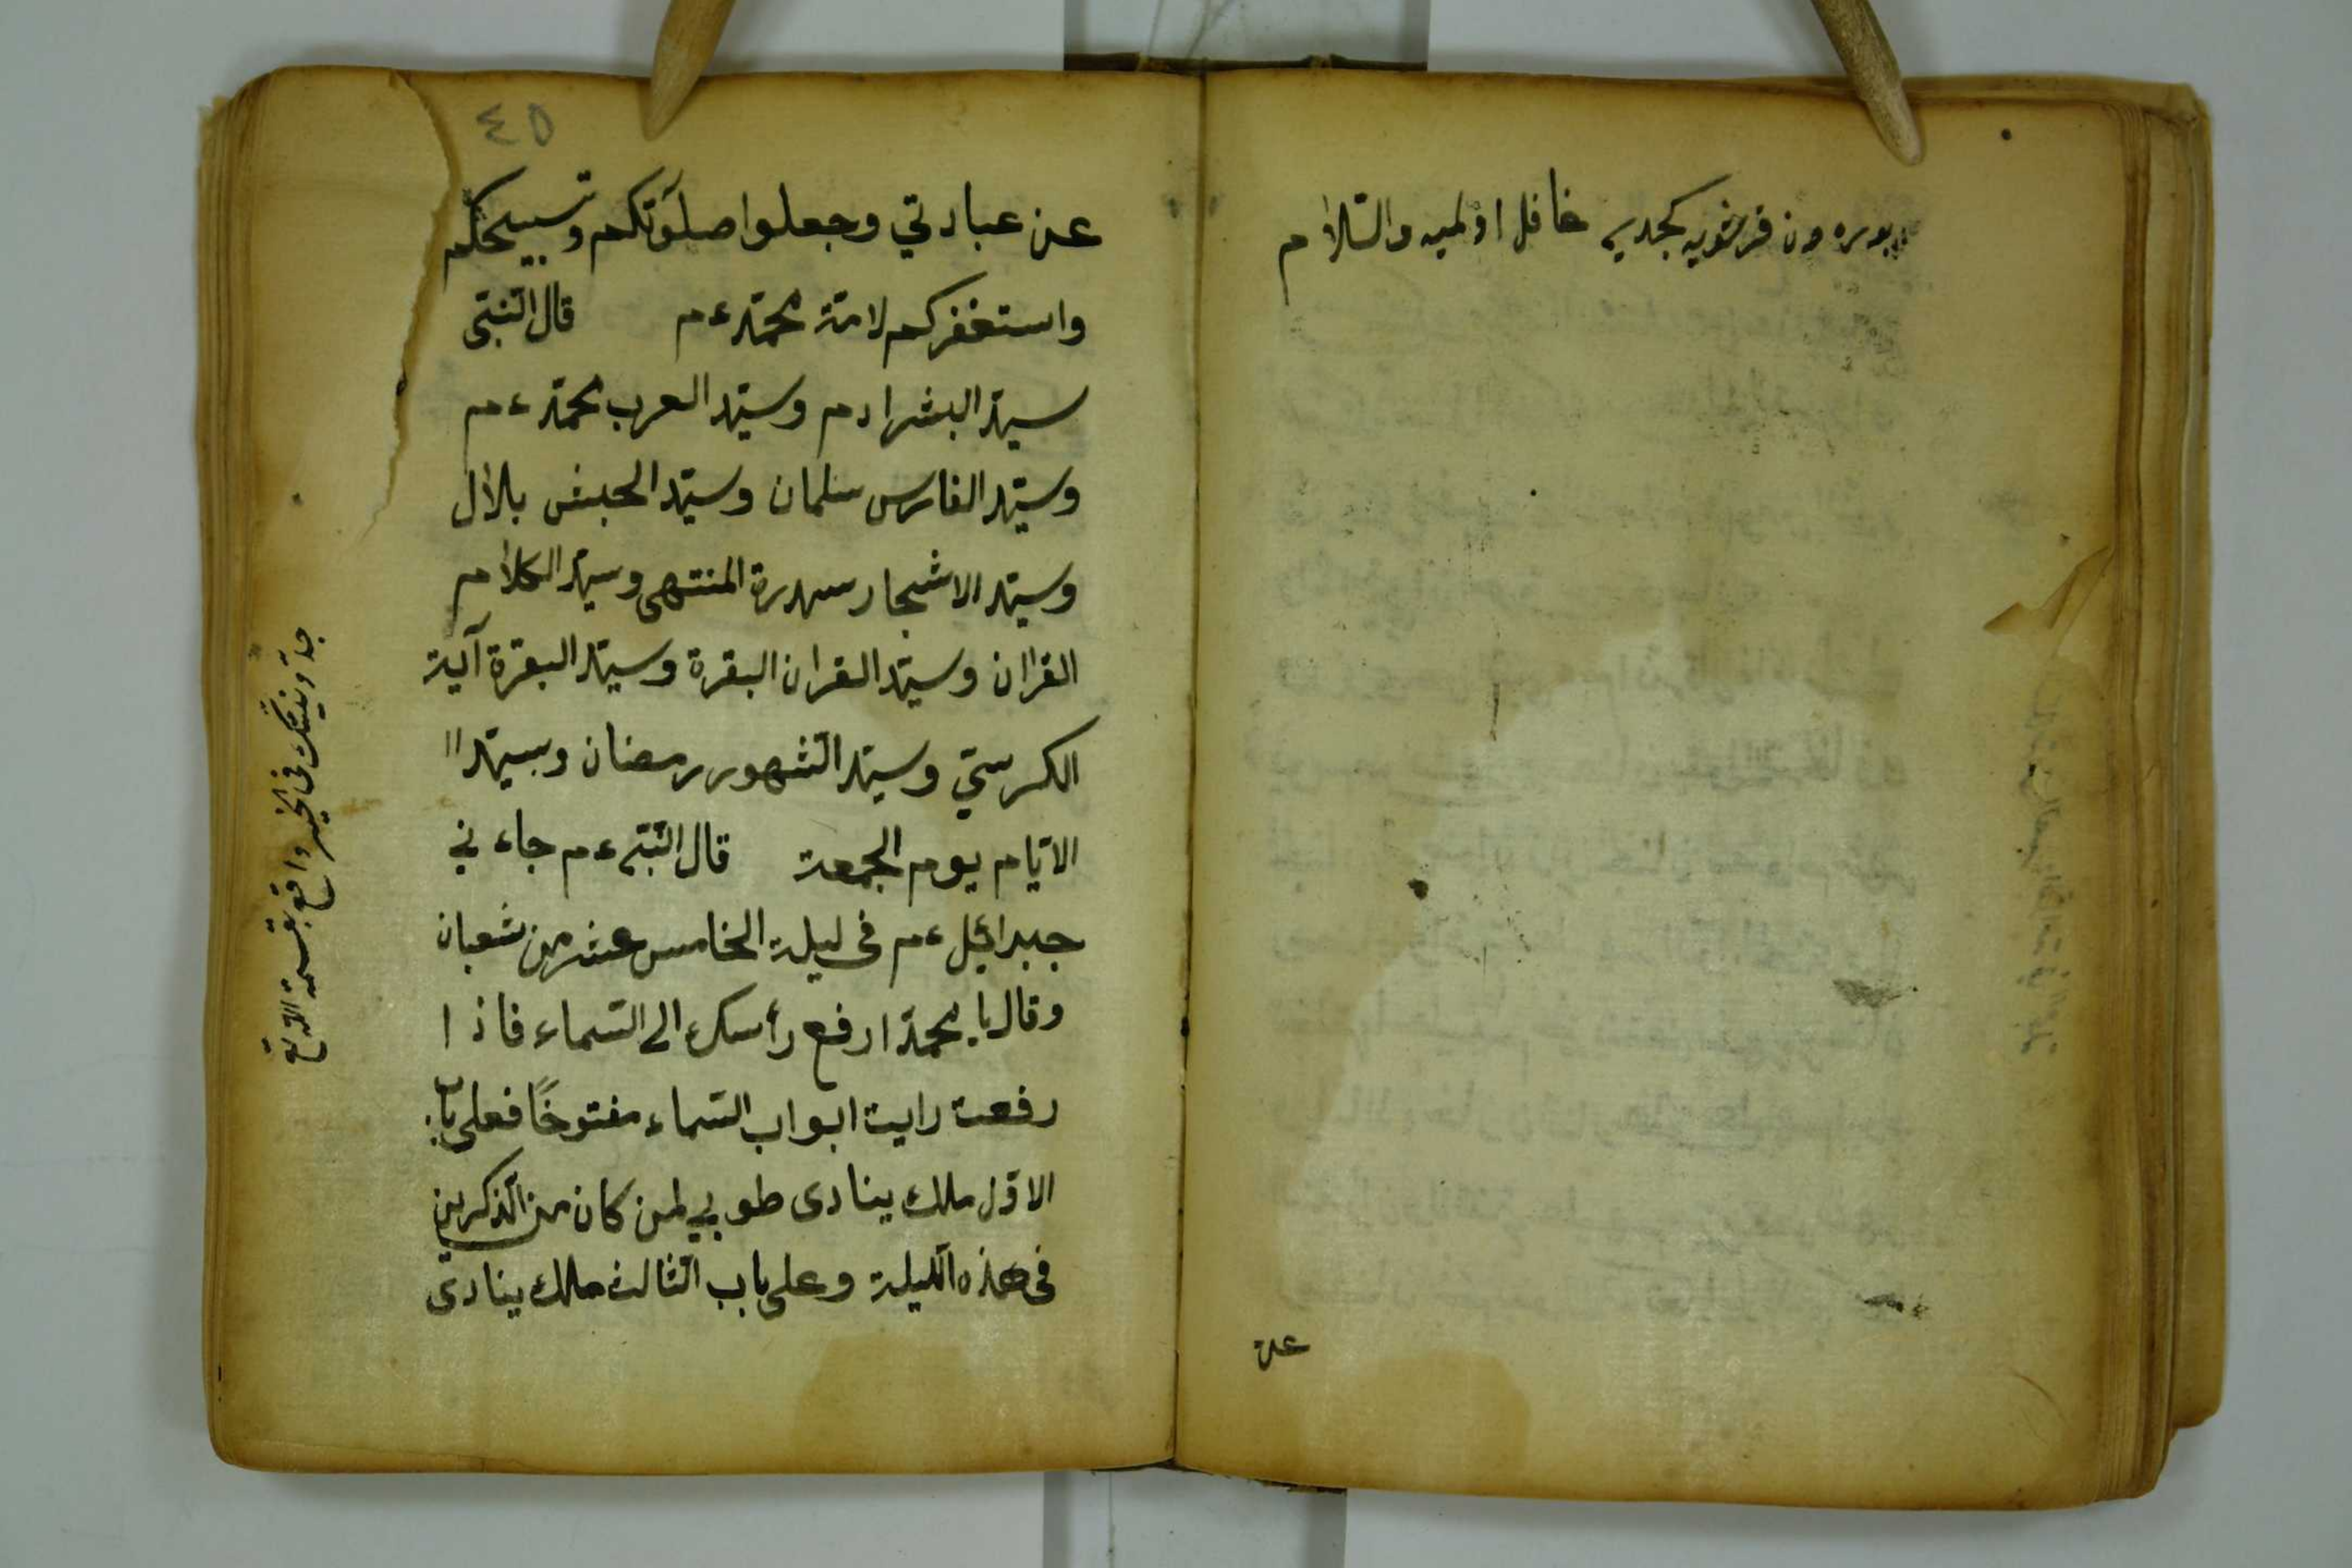 خافل اولميه والسّلام
عن
٤٥
عن عبادتي وجعلوا صلوٓتكم وتسبيحكم
واستغفركم لامّة محمّد ءم قال النّبىّ
سيّد البشر ادم وسيّد العرب محمّد ءم
وسيّد الفارس سلمان وسيّد الحبش بلال
وسيّد الاشجار سدرة المنتهى وسيّد الكلام
القران وسيّد القران البقرة وسيّد البقرة آية
الكرسيّ وسيّد الشّهور رمضان وسيّد ا
الايّام يوم الجمعة قال النّبىّ ءم جاءني
جبرائيل ءم فى ليلة الخامس عشر من شعبان
وقال يا محمّد ارفع رأسك الى السّماء فاذا
رفعت رايت ابواب السّماء مفتوحًا فعلى باب
الاوّل ملك ينادى طوبي لمن كان من الذّكرين
فى هذه اللّيلة وعلى باب الثّالث ملك ينادى